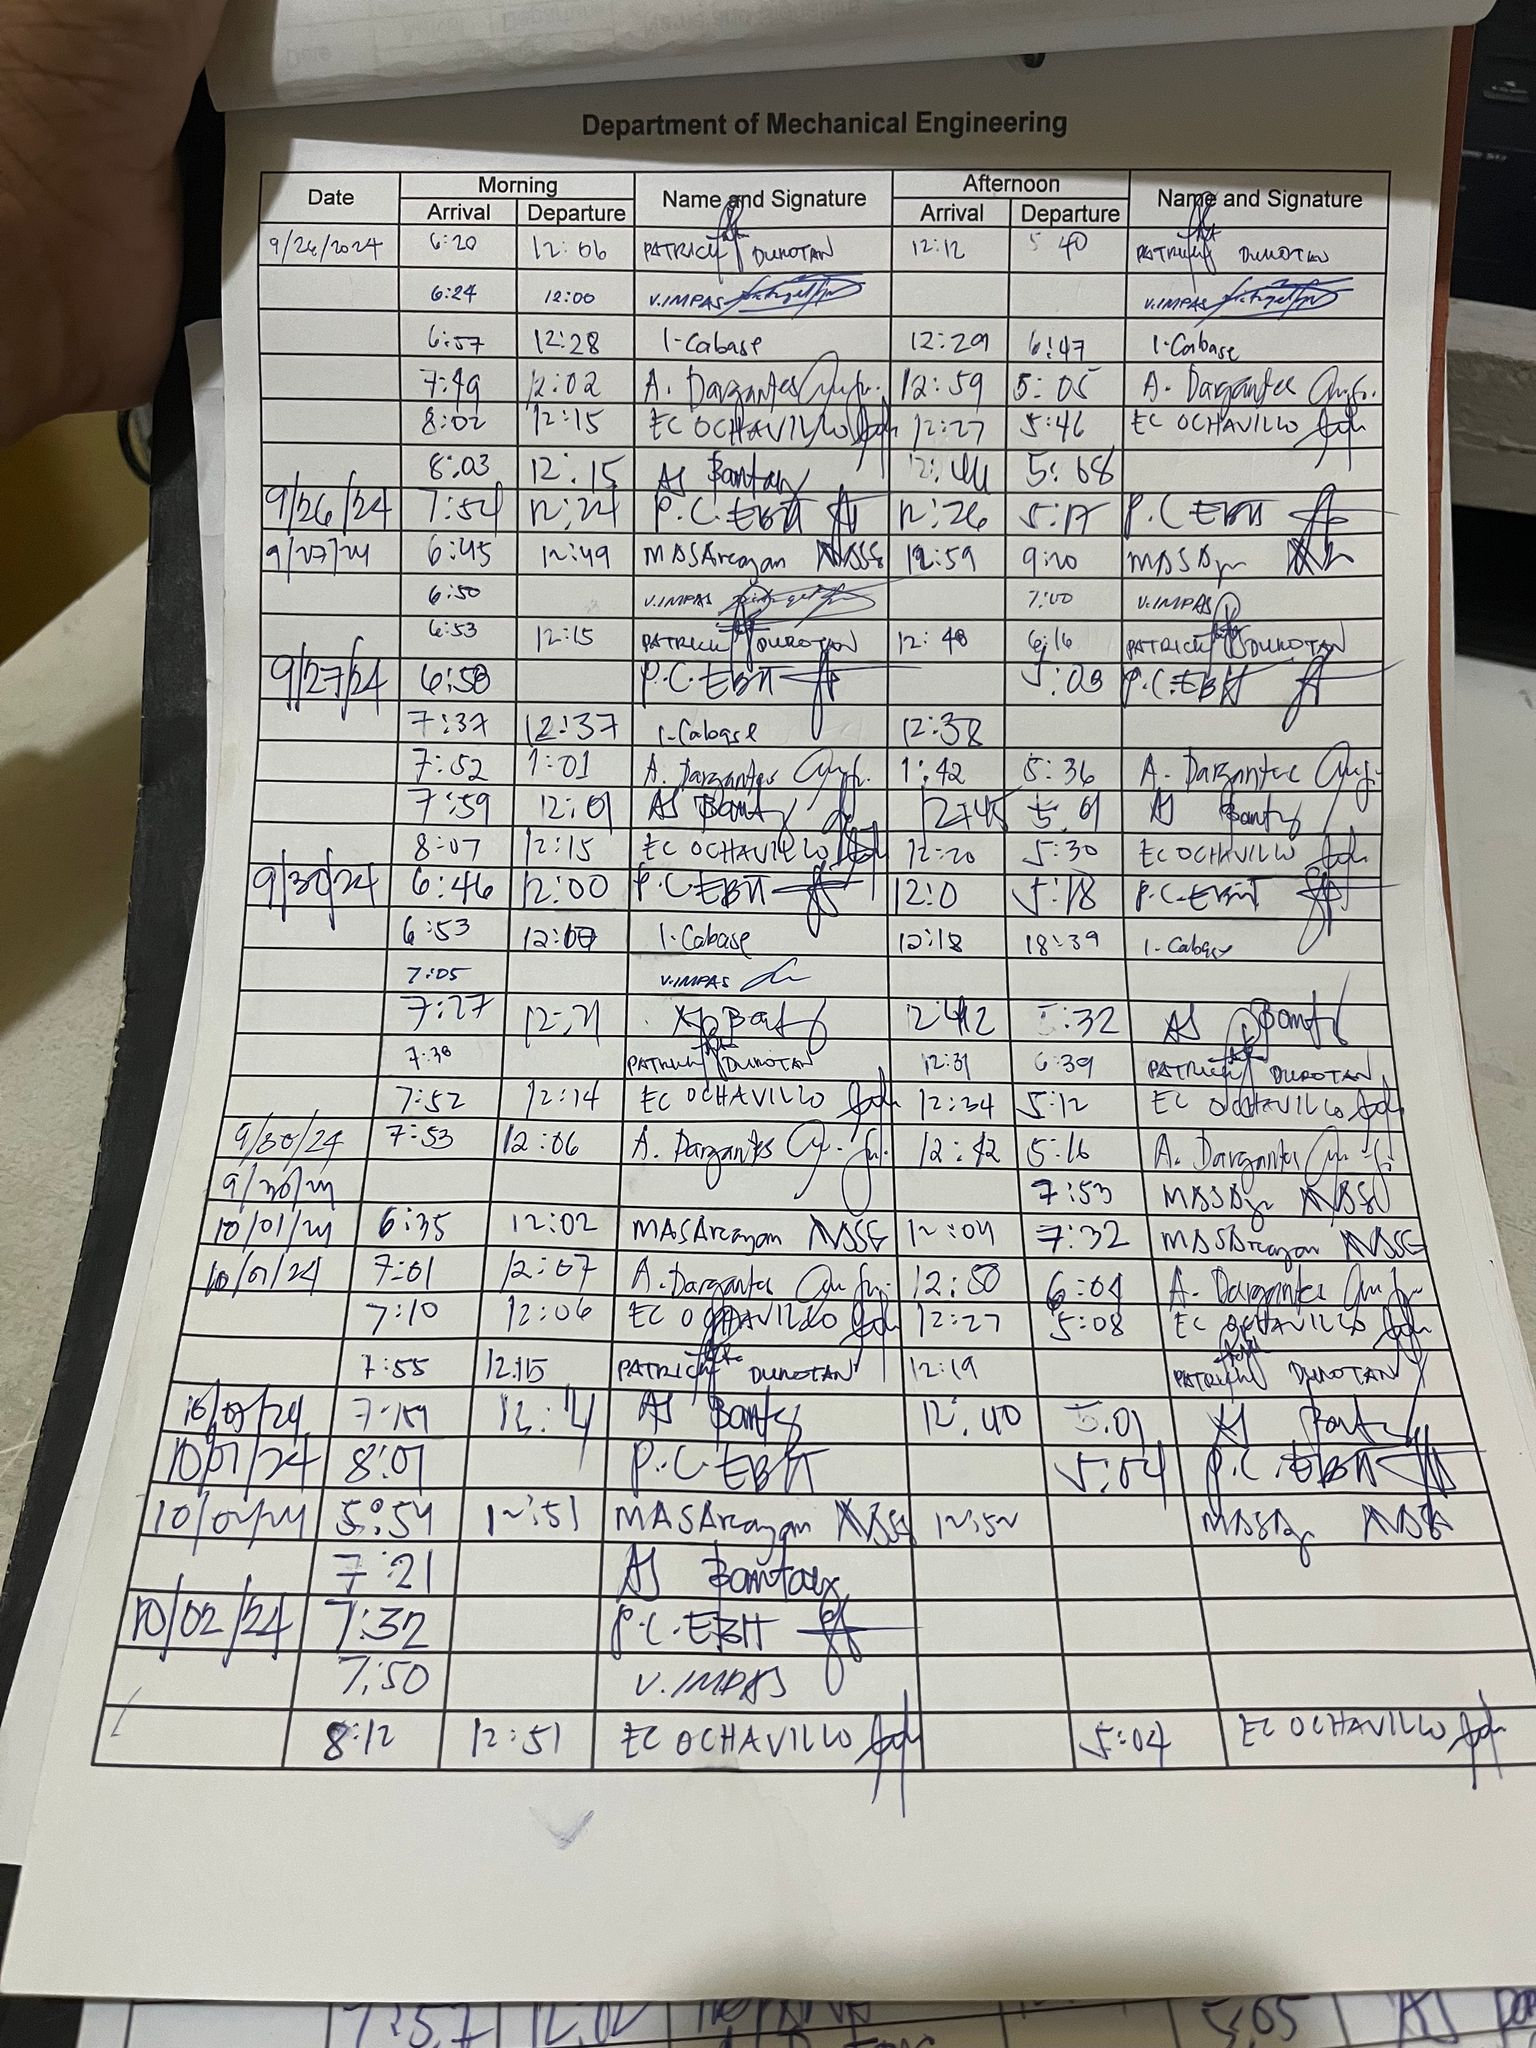 Department of Mechanical Engineering
Date Morning Name and Signature Afternoon Name and Signature
Arrival Departure Arrival Departure
9/26/2024 6:20 12:06 PATRICK DUROTAN 12:12 5 40 PATRICK DUROTAN
6:24 12:00 V.IMPAS V.IMPAS
6:57 12:28 I-Cabase 12:29 6:47 I-Cabase
7:49 12:02 A. Dargantes 12:59 5:05 A. Dargantes
8:02 12:15 EC OCHAVILLO 12:27 5:46 EC OCHAVILLO
8:03 12:15 AS 12:44 5:08
9/26/24 7:54 12:24 P.C.EBIT 12:26 5:17 P.C EBIT
9/27/24 6:45 12:49 MASArcayan 12:59 9:20
6:50 V.IMPAS 7:00 V.IMPAS
6:53 12:15 PATRICK DUROTAN 12:48 6:16 PATRICK DUROTAN
9/27/24 6:58 P.C.EBIT 5:03 P.C.EBIT
7:37 12:37 I-Cabase 12:38
7:52 1:01 A. Dargantes 1:42 5:36 A. Dargantes
7:59 12:01 AS 5:01 AS
8:07 12:15 EC OCHAVILLO 12:20 5:30 EC OCHAVILLO
9/30/24 6:46 12:00 P.C.EBIT 12:0 5:18 P.C.EBIT
6:53 I-Cabase 12:18 18:39 I-Cabase
7:05 V.IMPAS
7:27 12:21 :32 AS
7:38 PATRICK DUROTAN 12:31 6:39 PATRICK DUROTAN
7:52 12:14 EC OCHAVILLO 12:34 5:12 EC OCHAVILLO
9/30/24 7:53 12:06 A. Dargantes 12:42 5:16 A. Dargantes
9/30/24 7:53
10/01/24 6:35 12:02 MASArcayan 12:04 7:32 MASArcayan
10/01/24 7:01 12:07 A. Dargantes 12:50 6:04 A. Dargantes
7:10 12:06 EC OCHAVILLO 12:27 5:08 EC OCHAVILLO
7:55 12:15 PATRICK DUROTAN 12:19 PATRICK DUROTAN
AS 12:40 5:01
10/01/24 8:01 P.C.EBIT 5:04 P.C.EBIT
10/02/24 5:54 12:51 MASArcayan 12:52
7:21 AS
10/02/24 7:32 P.C.EBIT
7:50 V.IMPAS
8:12 12:51 EC OCHAVILLO 5:04 EC OCHAVILLO
7:57 12:02 5:05 AS